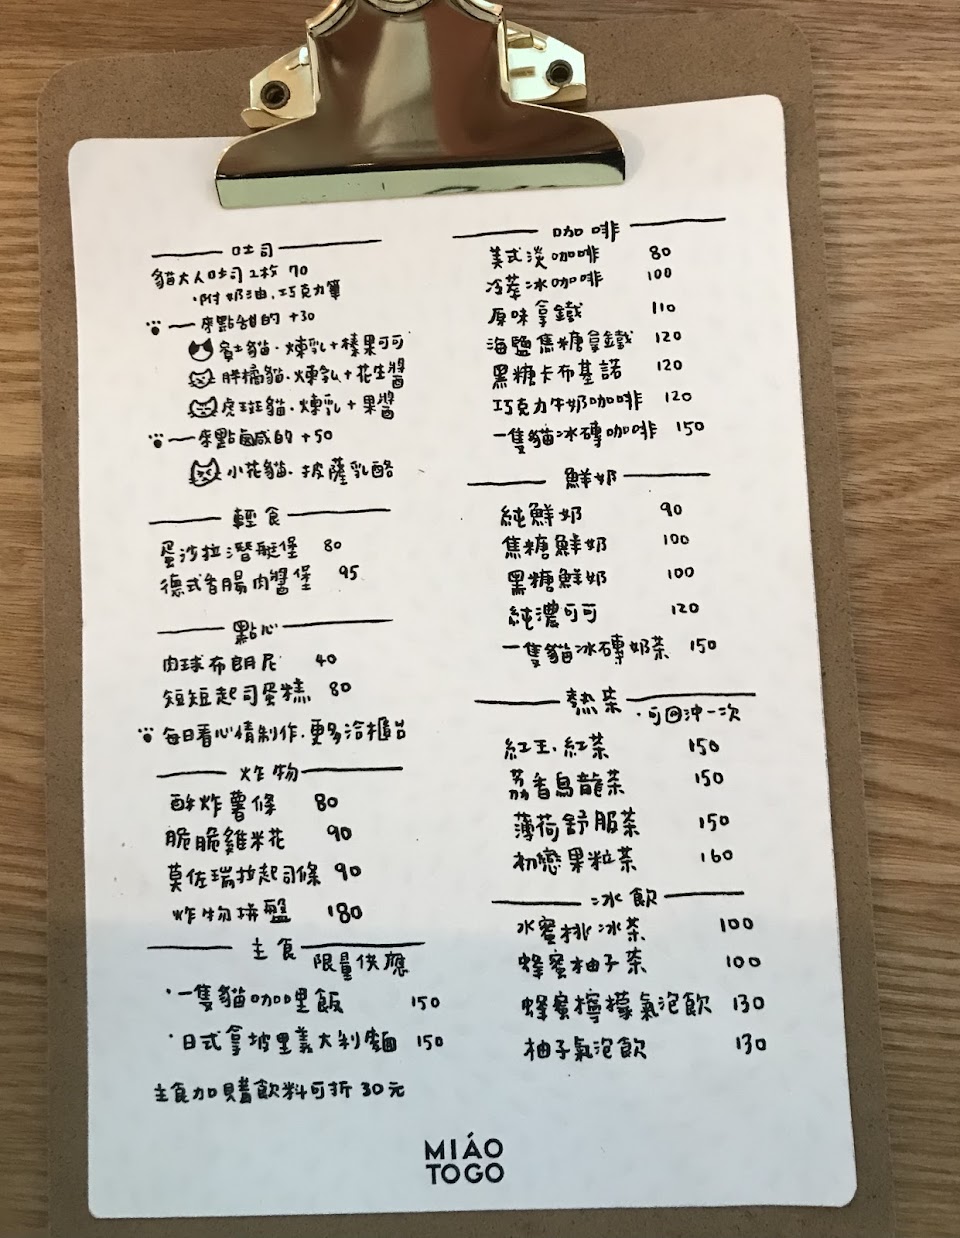 吐司
貓大人吐司2枚 70
·附奶油、巧克力筆
一來點甜的 +30
賓士貓·煉乳+榛果可可
胖橘貓·煉乳+花生醬
虎斑貓·煉乳+果醬
一來點鹹的 +50
小花貓·披薩乳酪
輕食
蛋沙拉潛艇堡 80
德式香腸肉醬堡 95
點心
肉球布朗尼 40
短短起司蛋糕 80
每日看心情制作,更多洽櫃台
炸物
酥炸薯條 80
脆脆雞米花 90
莫佐瑞拉起司條 90
炸物拼盤 180
主食 限量供應
·一隻貓咖哩飯 150
·日式拿坡里義大利麵 150
主食加購飲料可折30元
咖啡
美式淡咖啡 80
冷萃冰咖啡 100
原味拿鐵 110
海鹽焦糖拿鐵 120
黑糖卡布基諾 120
巧克力牛奶咖啡 120
一隻貓冰磚咖啡 150
鮮奶
純鮮奶 90
焦糖鮮奶 100
黑糖鮮奶 100
純濃可可 120
一隻貓冰磚奶茶 150
熱茶 ·可回沖一次
紅玉·紅茶 150
荔香烏龍茶 150
薄荷舒服茶 150
初戀果粒茶 160
冰飲
水蜜桃冰茶 100
蜂蜜柚子茶 100
蜂蜜檸檬氣泡飲 130
柚子氣泡飲 130
MIÁO
TOGO